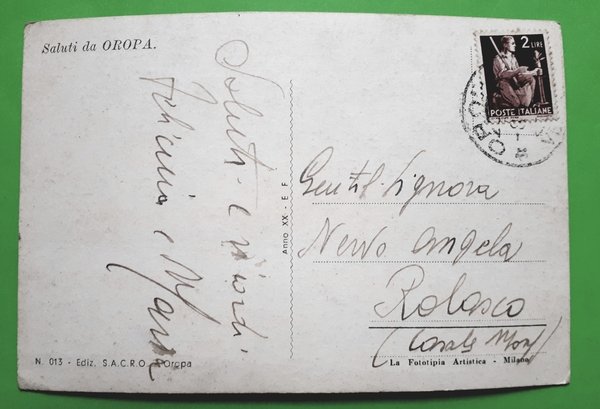 Saluti da OROPA.
Saluti e ricordi
Felicina e Mary
Anno XX - E F
N. 013 - Ediz. S.A.C.R.O. Oropa
2 LIRE
POSTE ITALIANE
Gentil Signora
Nervo Angela
Rolasco
(Casale Monf)
La Fototipia Artistica - Milano